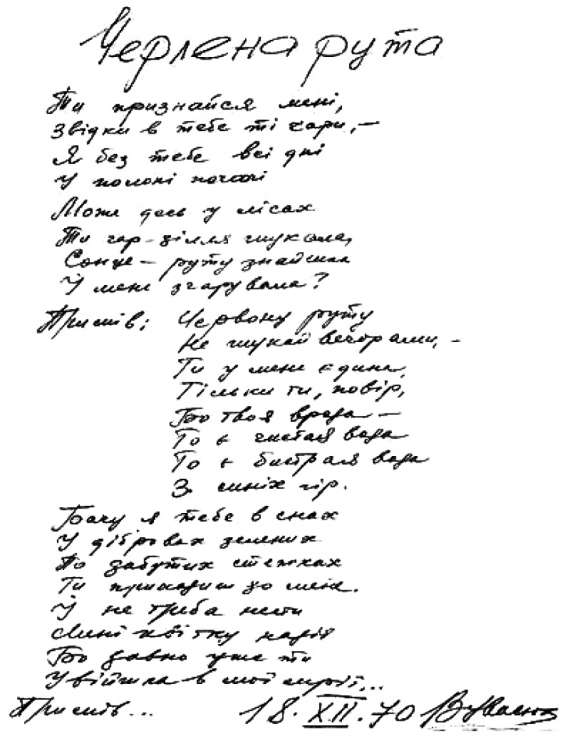 Черлена рута
Ти признайся мені,
Звідки в тебе ті чари, –
Я без тебе всі дні
У полоні печалі
Може десь у лісах
Ти чар-зілля шукала,
Сонце – руту знайшла
І мене зчарувала?
Приспів: Червону руту
Не шукай вечорами, –
Ти у мене єдина,
Тільки ти, повір,
Бо твоя врода –
То є чистая вода
То є бистрая вода
З синіх гір.
Бачу я тебе в снах
У дібровах зелених
По забутих стежках
Ти приходиш до мене.
І не треба нести
Мені квітку надії
Бо давно уже ти
Увійшла в мої мрії...
Приспів... 18.XII.70